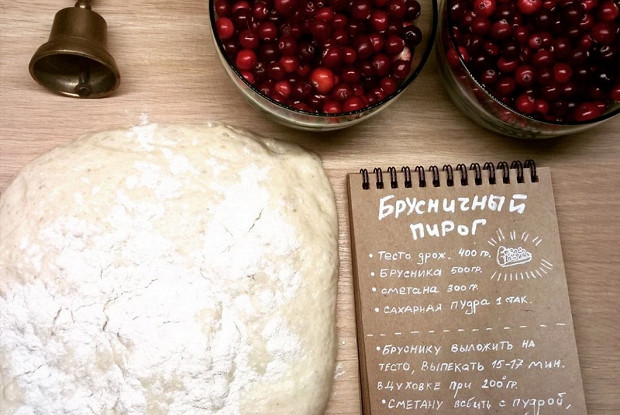 Брусничный
пирог
• Тесто дрож. 400 гр.
• Брусника 500 гр.
• сметана 300 гр.
• сахарная пудра 1 стак.
• Бруснику выложить на
тесто, выпекать 15-17 мин.
в духовке при 200°гр.
• Сметану взбить с пудрой,